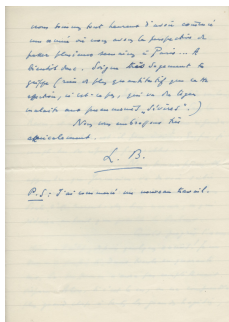 nous sommes tout heureux d'avoir
une amie si vous avez la perspective de
passer plusieurs semaines à Paris... A
bientôt donc. Soigne très sagement ta
grippe (rien de plus que
affection, n'est-ce pas, qui
maladie aux "sévères".)
Nous vous embrassons très
affectueusement.
L. B.
P.S: J'ai commencé un nouveau travail.